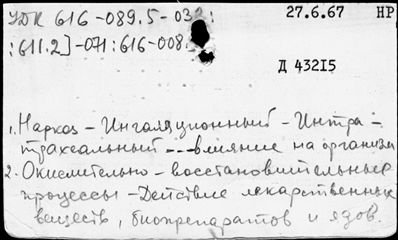 УДК 616-089.5-032:
27.6.67 НР
:611.2]-071:616-008.
Д 43215
1. Наркоз - Ингаляционный - Интра-
трахеальный --- влияние на организм
2. Окислительно - восстановительные
процессы - Действие лекарственных
веществ, биопрепаратов и ядов.